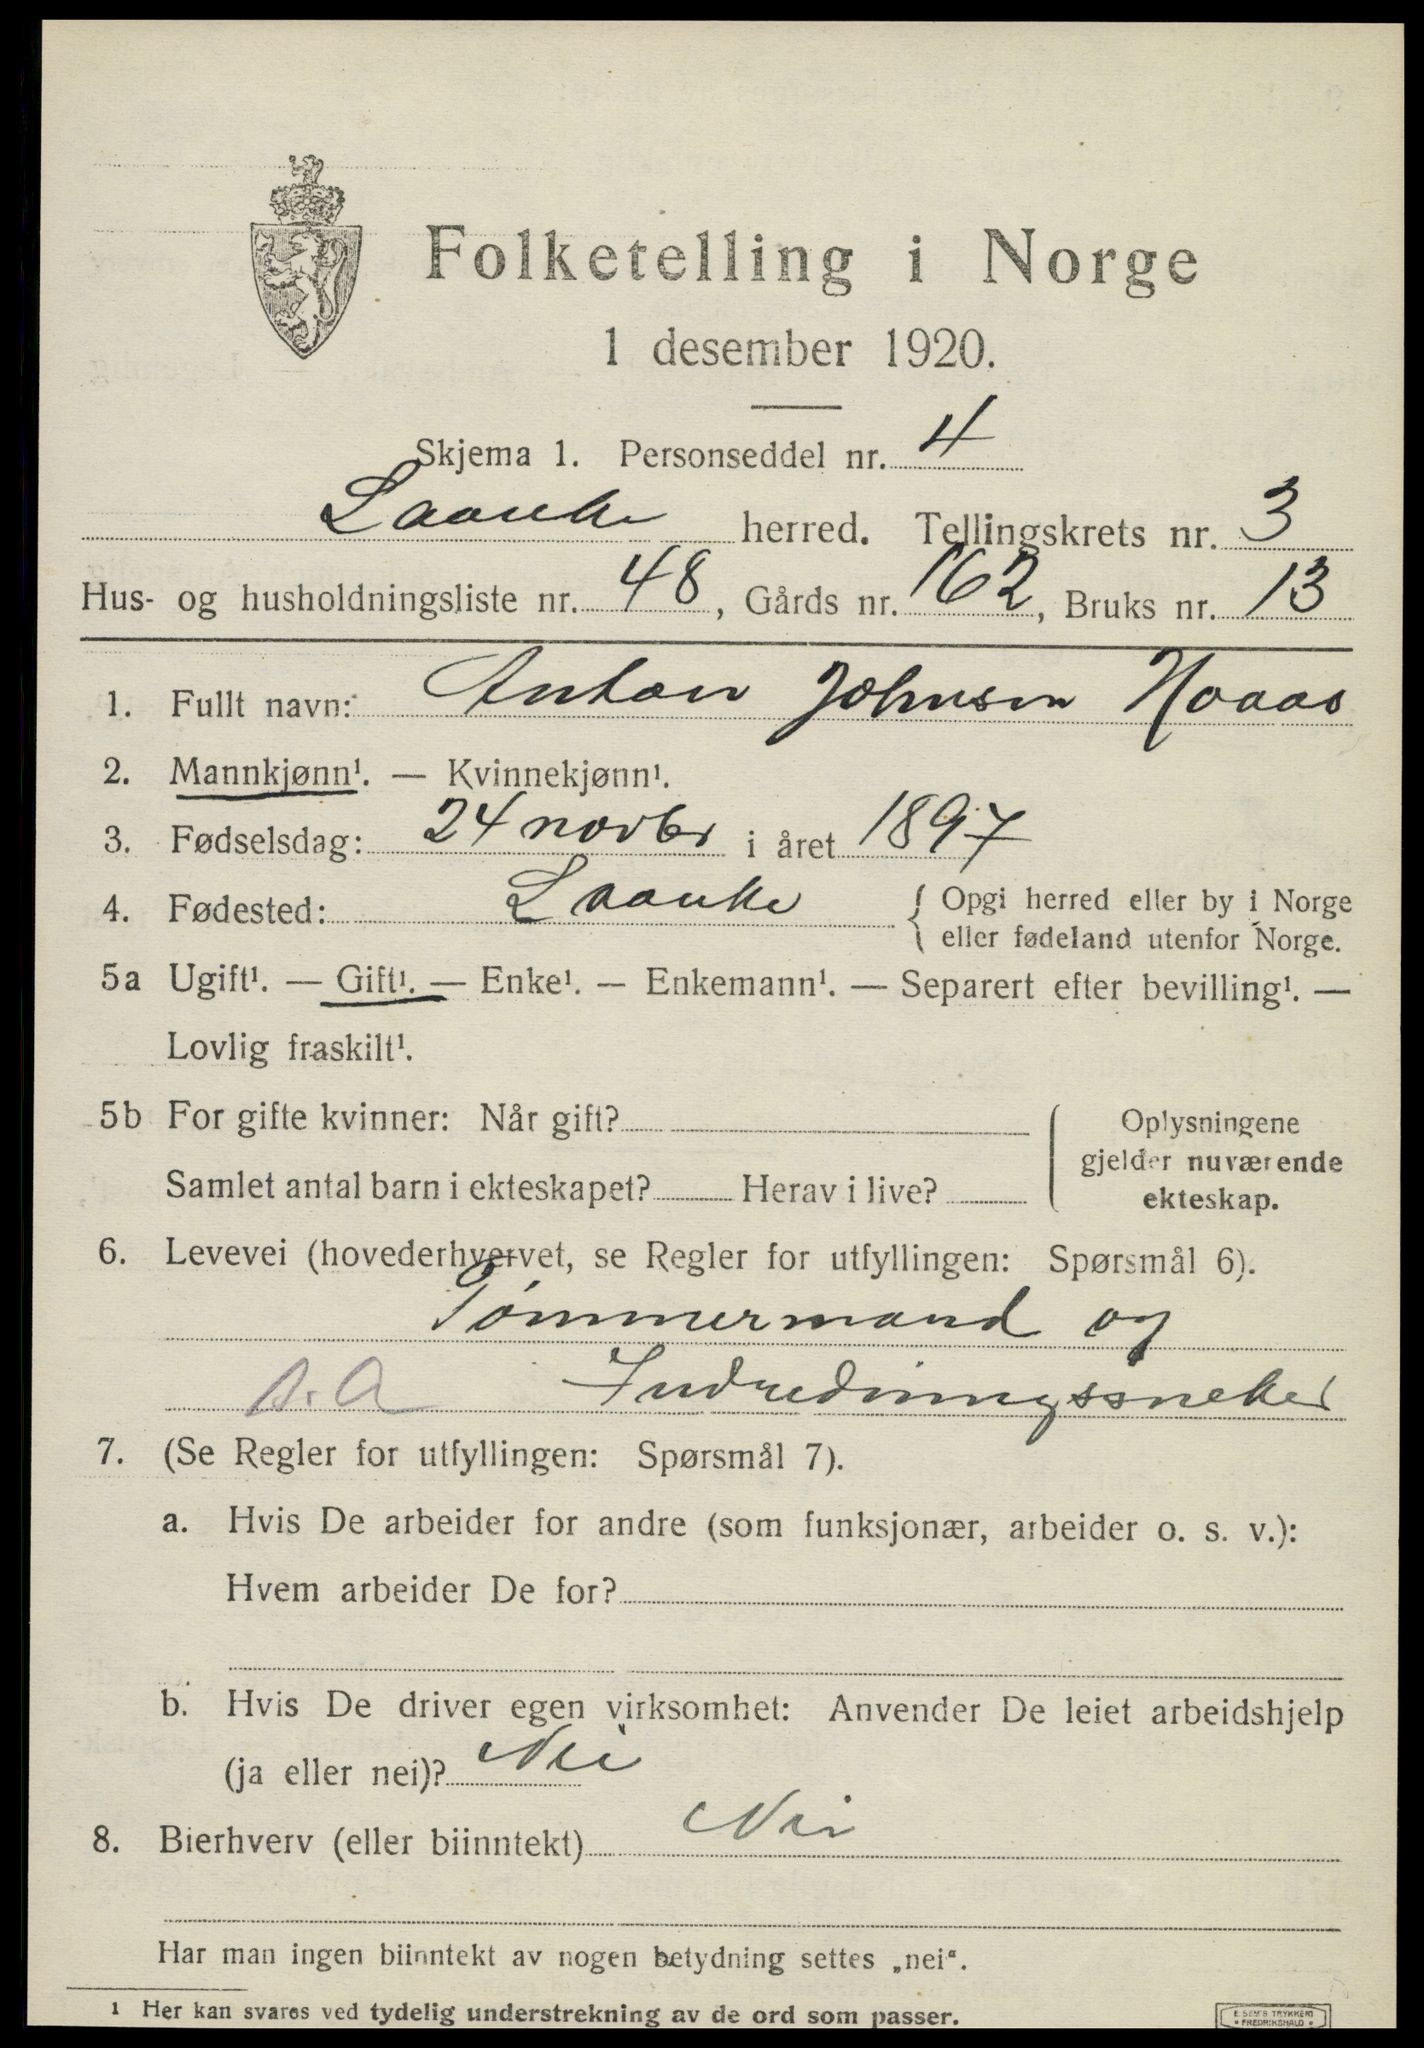 Folketelling i Norge
1 desember 1920.
Skjema 1. Personseddel nr. 4
Laanke herred. Tellingskrets nr. 3
Hus- og husholdningsliste nr. 48, Gårds nr. 162, Bruks nr. 13
1. Fullt navn: Anton Johnsen Hoaas
2. Mannkjønn¹. — Kvinnekjønn¹.
3. Fødselsdag: 24 novbr i året 1897
4. Fødested: Laanke { Opgi herred eller by i Norge
eller fødeland utenfor Norge.
5a Ugift¹. — Gift¹. — Enke¹. — Enkemann¹. — Separert efter bevilling¹. —
Lovlig fraskilt¹.
5b For gifte kvinner: Når gift?
Samlet antal barn i ekteskapet? Herav i live?
Oplysningene
gjelder nuværende
ekteskap.
6. Levevei (hovederhvervet, se Regler for utfyllingen: Spørsmål 6).
Tømmermand og
s. A Indredningssneker
7. (Se Regler for utfyllingen: Spørsmål 7).
a. Hvis De arbeider for andre (som funksjonær, arbeider o. s. v.):
Hvem arbeider De for?
b. Hvis De driver egen virksomhet: Anvender De leiet arbeidshjelp
(ja eller nei)? Nei
8. Bierhverv (eller biinntekt) Nei
Har man ingen biinntekt av nogen betydning settes „nei“.
1 Her kan svares ved tydelig understrekning av de ord som passer.
E. SEM'S TRYKKERI
• FREDRIKSHALD •